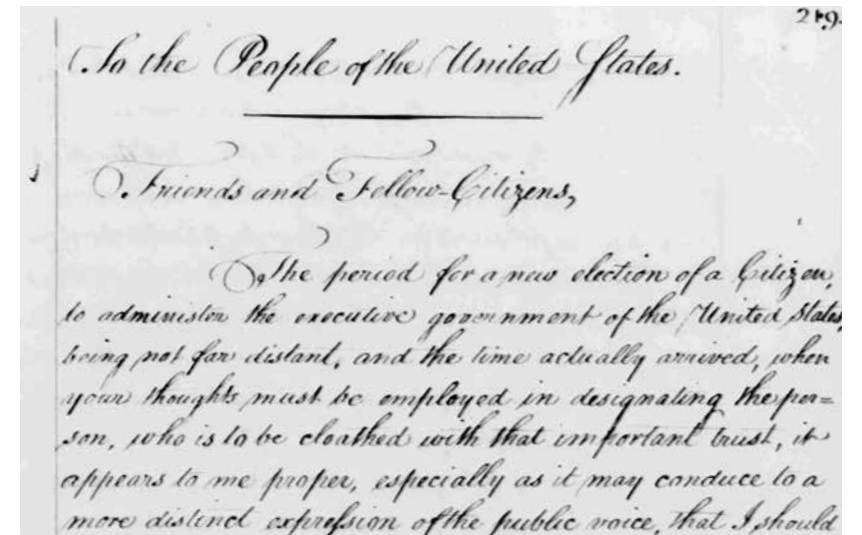 219.
To the People of the United States.
Friends and Fellow-Citizens,
The period for a new election of a Citizen,
to administer the executive government of the United States,
being not far distant, and the time actually arrived, when
your thoughts must be employed in designating the per=
son, who is to be cloathed with that important trust, it
appears to me proper, especially as it may conduce to a
more distinct expression of the public voice, that I should